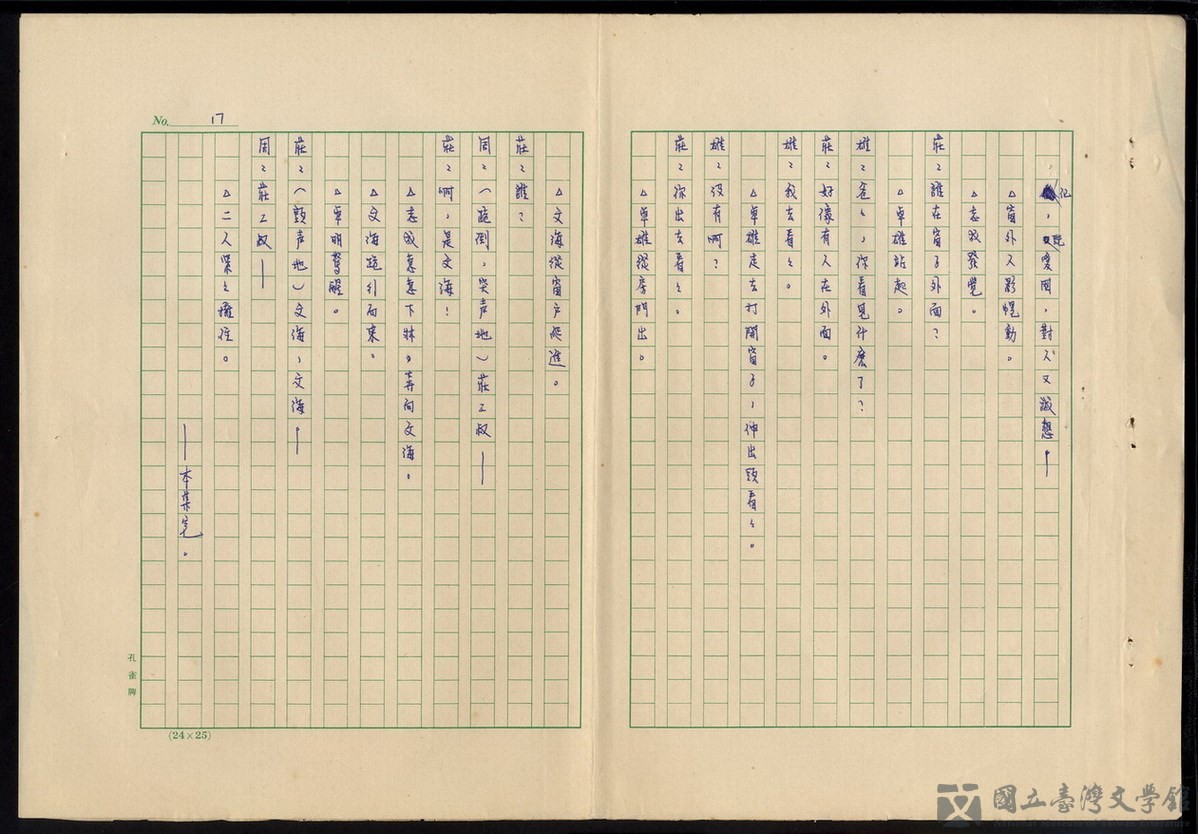 他,既愛國,對人又誠懇—
△窗外人影幌動。
△志成發覺。
莊：誰在窗子外面？
△卓雄站起。
雄：爸々,你看見什麼了？
莊：好像有人在外面。
雄：我去看々。
△卓雄走去打開窗子,伸出頭看々。
雄：沒有啊？
莊：你出去看々。
△卓雄從房門出。
No. 17
△文海從窗戶爬進。
莊：誰？
周：(跪倒,哭声地)莊三叔—
莊：啊,是文海！
△志成急急下牀。奔向文海。
△文海跪行而來。
△卓明驚醒。
莊：(顫声地)文海,文海—
周：莊三叔—
△二人緊々擁住。
—本集完。
孔雀牌
(24×25)
國立臺灣文學館